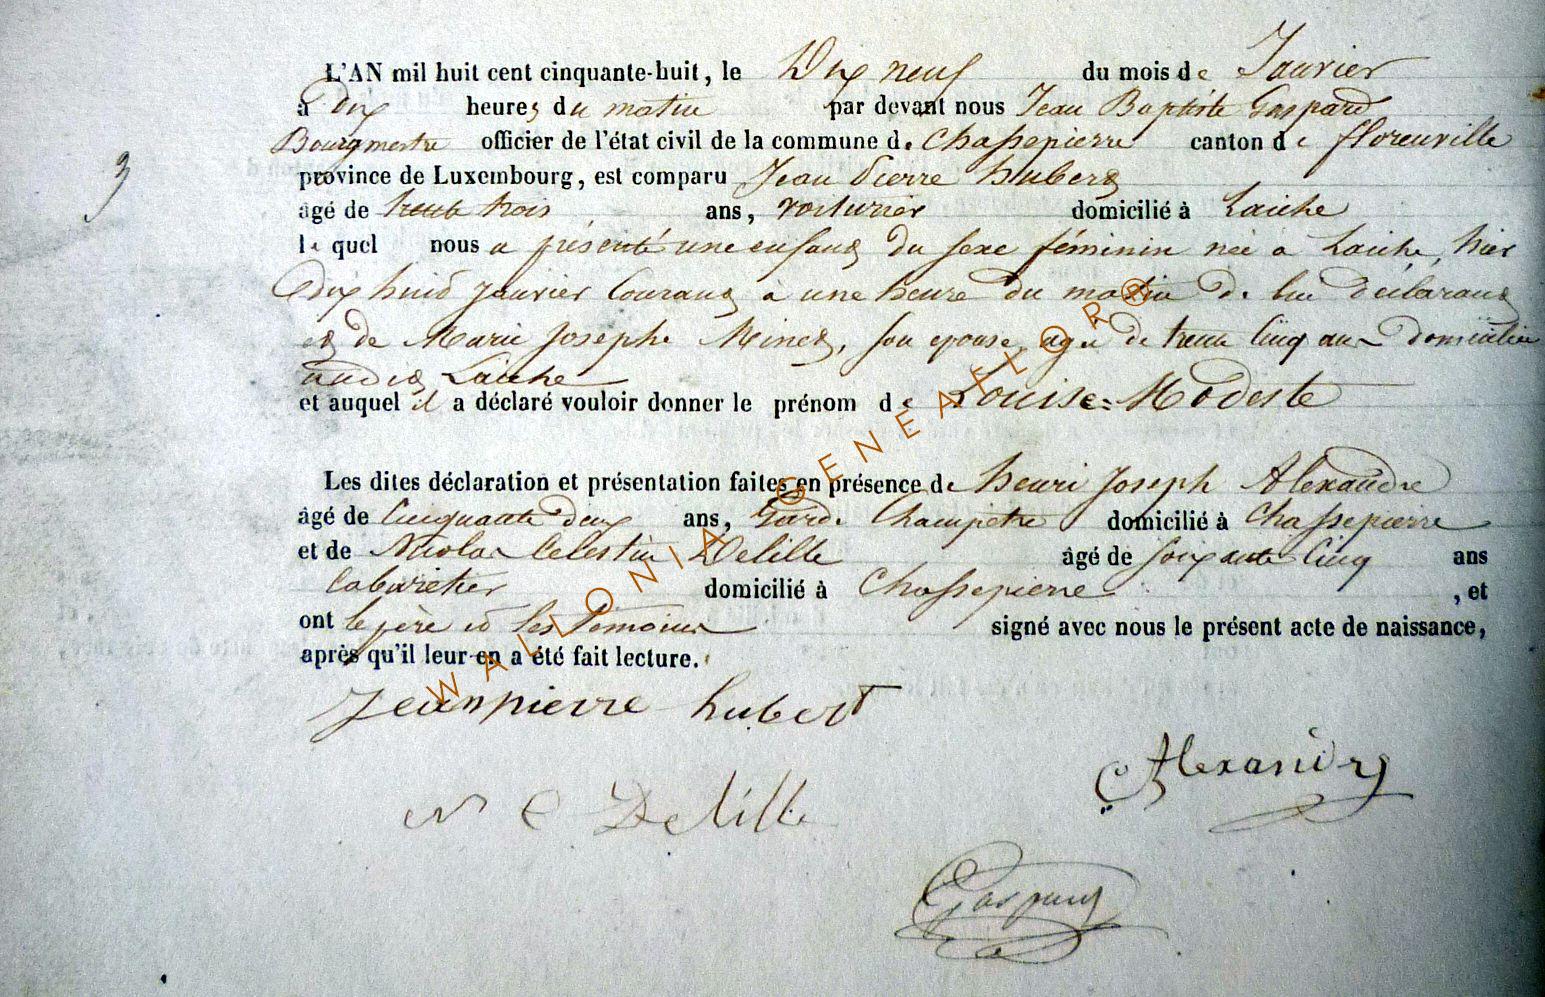 L'AN mil huit cent cinquante-huit, le Dix neuf du mois de Janvier
à dix heures du matin par devant nous Jean Baptiste Gaspard
Bourgmestre officier de l'état civil de la commune de Chassepierre canton de florenville
3
province de Luxembourg, est comparu Jean Pierre hubert
âgé de trente trois ans, voiturier domicilié à Laiche
lequel nous a présenté une enfant du sexe féminin née à Laiche, hier
dix huit janvier Courant à une heure du matin de lui déclarant
et de Marie Josephe Minet, son epouse agée de trente Cinq ans domiciliée
audit Laiche
et auquel il a déclaré vouloir donner le prénom de Louise=Modeste
Les dites déclaration et présentation faites en présence de henri Joseph Alexandre
âgé de Cinquante deux ans, Garde Champetre domicilié à Chassepierre
et de Nicolas Celestin Delille âgé de soixante Cinq ans
Cabaretier domicilié à Chassepierre, et
ont le père et les témoins signé avec nous le présent acte de naissance,
après qu'il leur en a été fait lecture.
Jeanpierre hubert
Alexandre
N C Delille
Gaspard
WALLONIA GENEAFLOR®